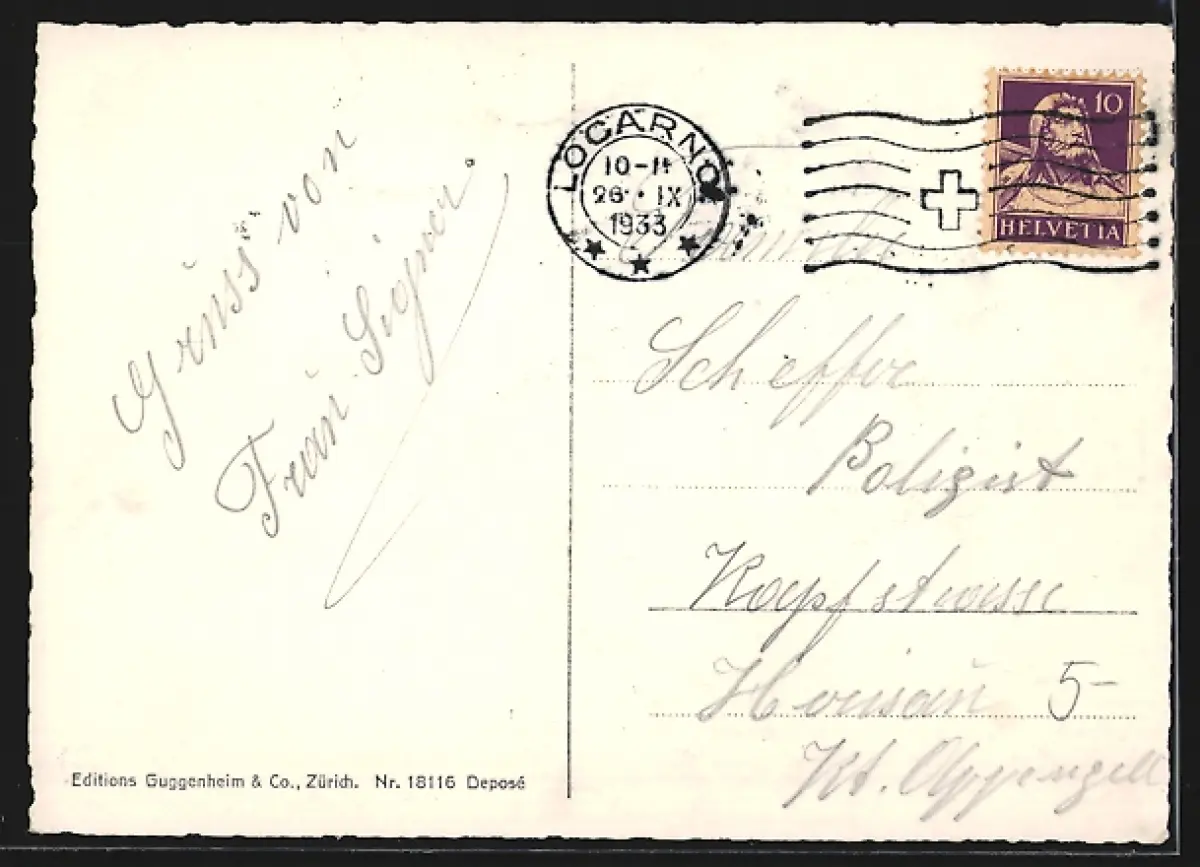 Grüss von
Frau Signer.
LOCARNO
10-11
26. IX
1933
10
HELVETIA
Familie
Scheffer
Polizist
Kopfstrasse
Herisau 5-
Kt. Appenzell
Editions Guggenheim & Co., Zürich. Nr. 18116 Deposé